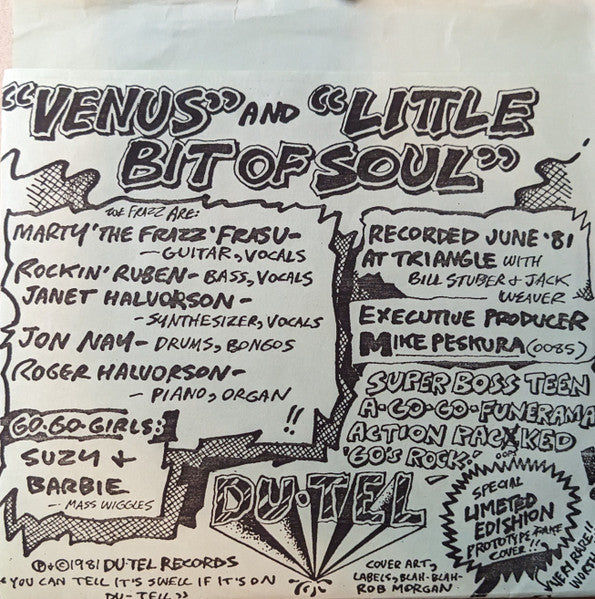 "VENUS" AND "LITTLE
BIT OF SOUL"
THE FRAZZ ARE:
MARTY 'THE FRAZZ' FRASU-
-GUITAR, VOCALS
ROCKIN' RUBEN- BASS, VOCALS
JANET HALVORSON-
-SYNTHESIZER, VOCALS
JON NAY- DRUMS, BONGOS
ROGER HALVORSON-
- PIANO, ORGAN
!!
GO-GO-GIRLS:
SUZY +
BARBIE
-MASS WIGGLES
RECORDED JUNE '81
AT TRIANGLE WITH
BILL STUBER + JACK
WEAVER
EXECUTIVE PRODUCER
MIKE PESKURA (0085)
SUPER BOSS TEEN
A-GO-GO-FUNERAMA
ACTION PACKED
'60'S ROCK!
OOPS
DU-TEL
SPECIAL
LIMITED
EDISHION
PROTOTYPE FAKE
COVER!!
℗+©1981 DU-TEL RECORDS
"YOU CAN TELL IT'S SWELL IF IT'S ON
DU-TELL"
COVER ART,
LABELS, BLAH-BLAH-
ROB MORGAN
WORTH